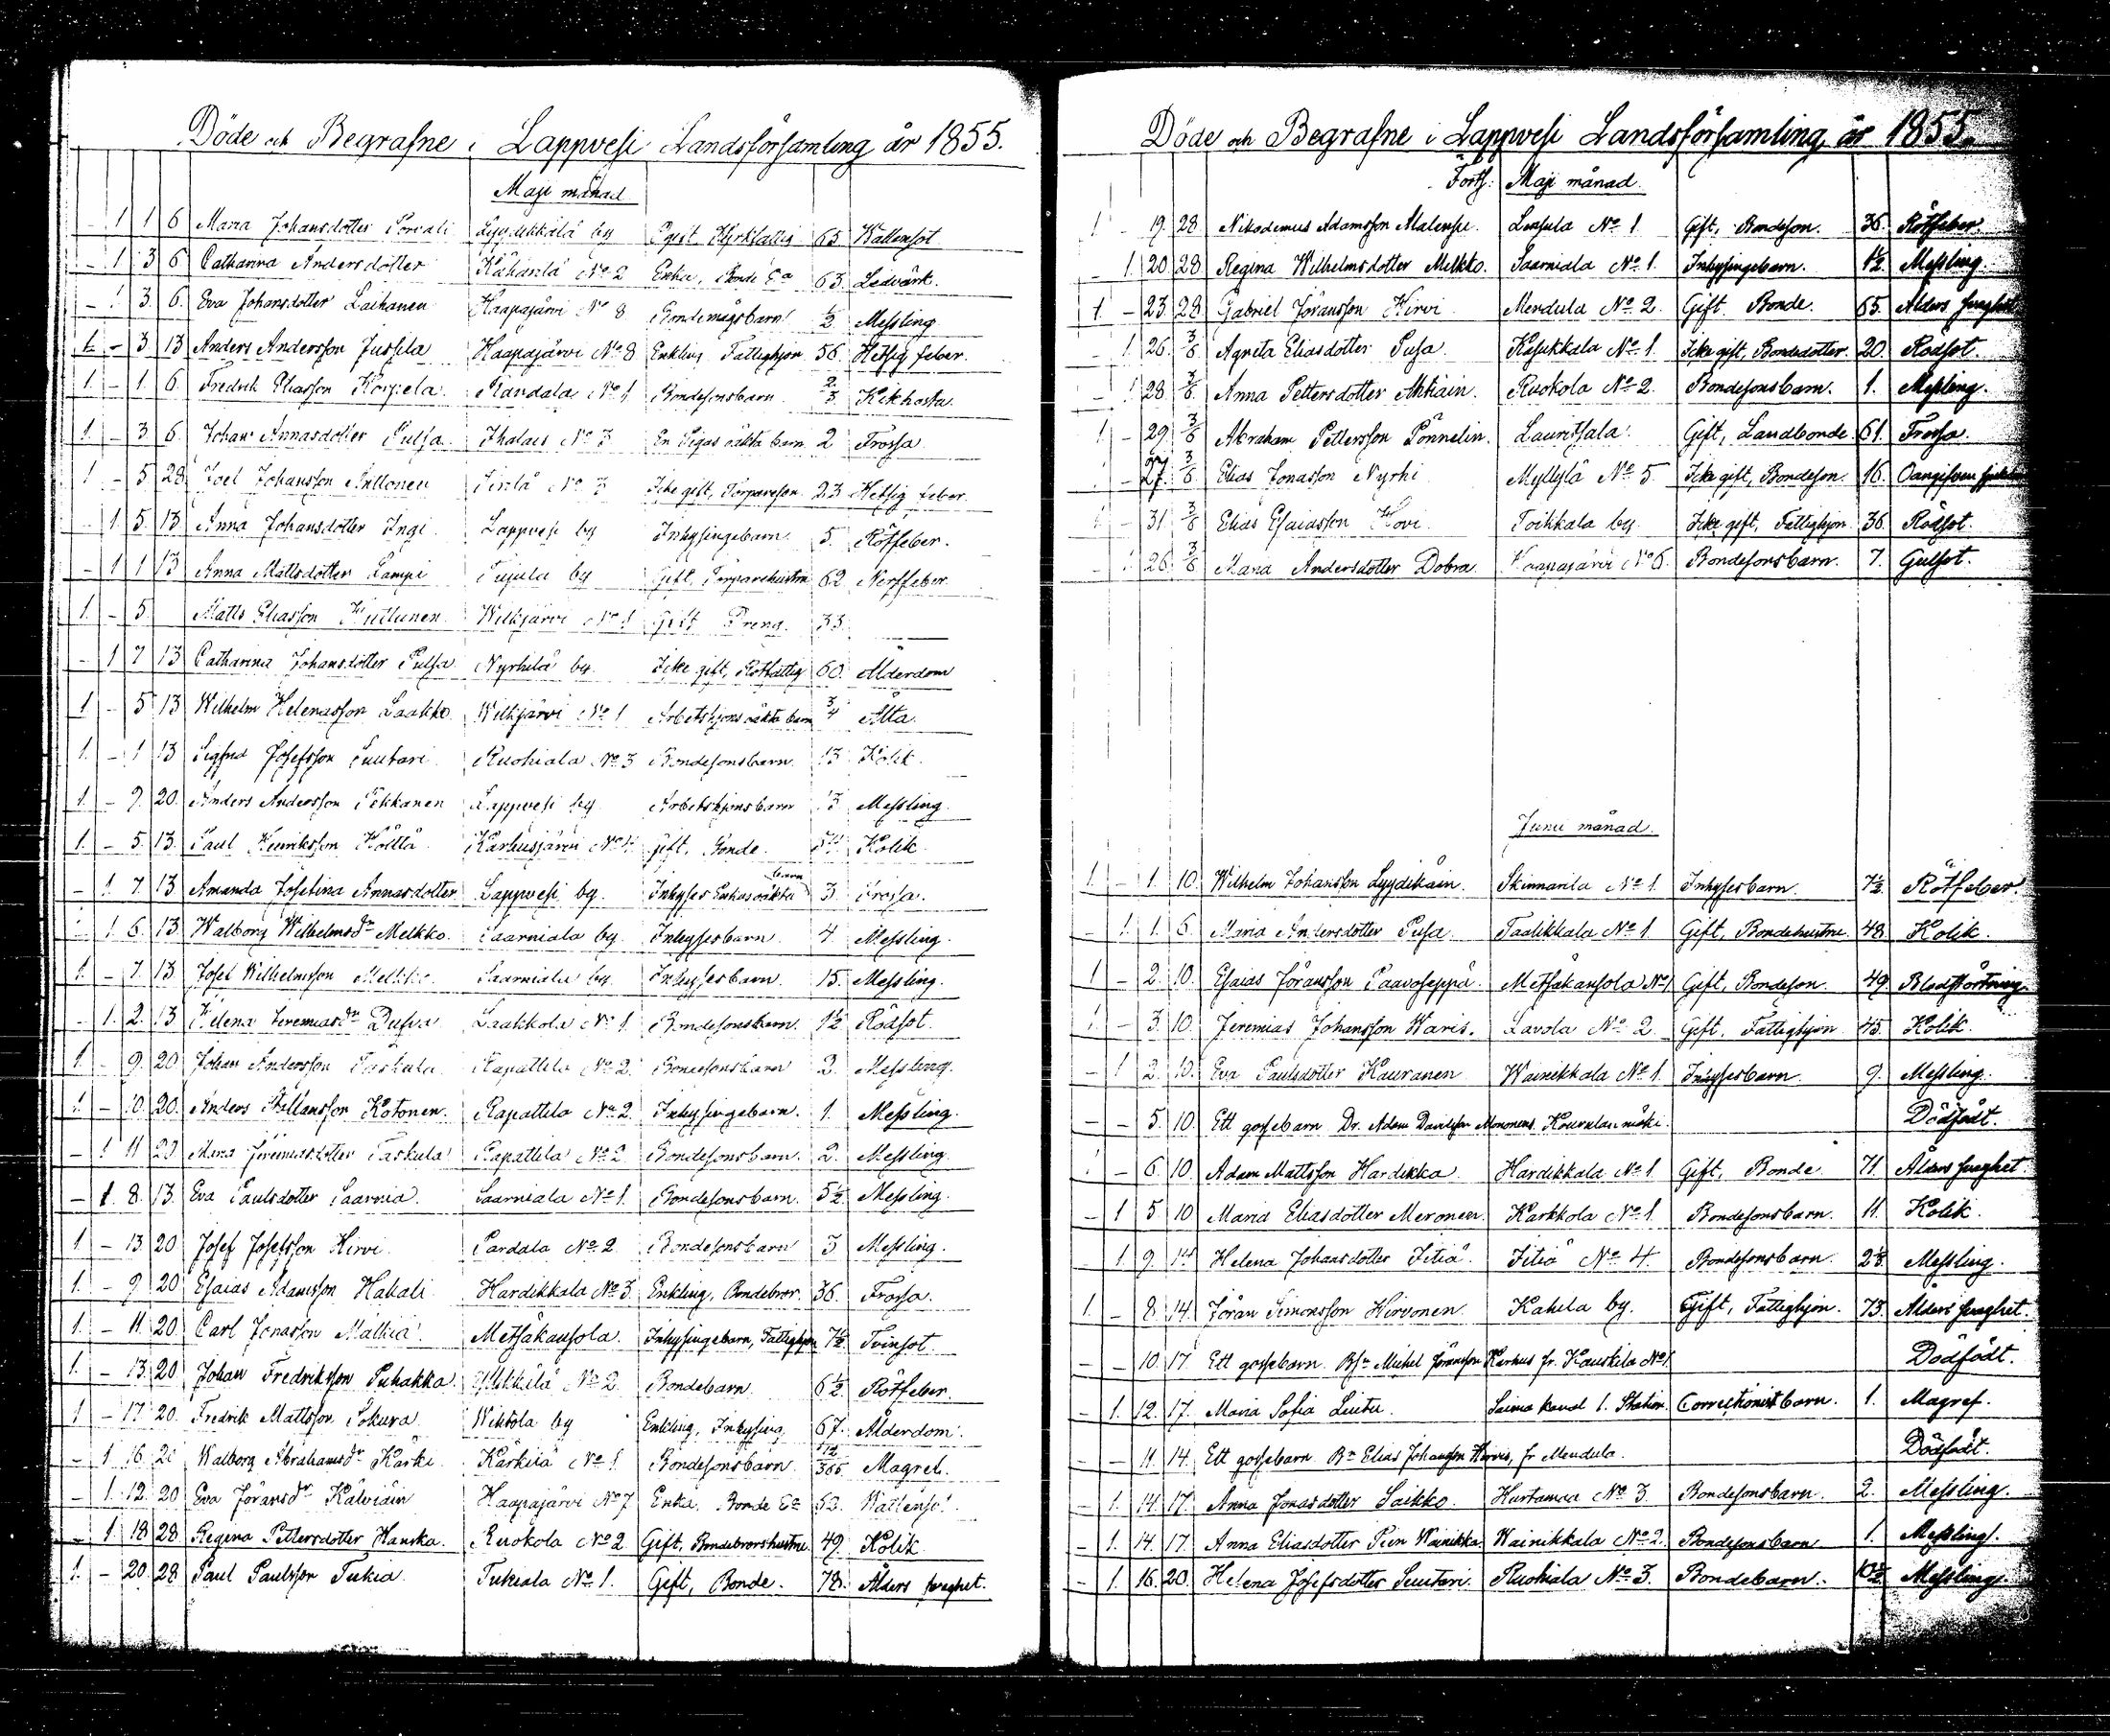 Döde och Begrafne i Lappvesi Landsförsamling år 1855.
Maji månad
- 1 1 6 Maria Johansdotter Porvali by Kyrkfattig 65 Wattensot
- 1 3 6 Catharina Andersdotter No 2 Enka, Bonde 63. Ledvärk.
- 1 3. 6. Eva Johansdotter Laihanen Haapajärvi No 8 Bondemågsbarn 1/2 Messling
1 - 3 13 Anders Andersson Jussila Haapajärvi No 8 Enkling Fattighjon 56. Hetsig feber.
1. - 1. 6. Fredrik Eliasson No 1 Bondesonsbarn 2/3 Kikhosta.
1. - 3 6. Johan Annasdotter Pulsa Ihalais No 3 En Pigas oäkta barn 2 Frossa
1 - 5 28 Joel Johansson Anttonen No 3 Icke gift, Torpareson. 23 Hetsig feber.
- 1. 5. 13. Anna Johansdotter Inge Lappvesi by Inhysingebarn 5. Rötfeber.
- 1 1 13 Anna Mattsdotter Lampi by Gift, Torparehustru 62 Nerffeber.
1. - 5. Matts Eliasson Huttunen Wilkjärvi No 1 Gift Dreng. 33.
- 1 7 13 Catharina Johansdotter Pulsa Nyrhilä by. Icke gift, Rotfattig 60. Ålderdom
1 - 5 13 Wilhelm Helenasson Laakko. Wilkjärvi No 1 Arbetshjons oäkta barn 3/4 Älta.
1. - 1 13 Sigfrid Josefsson Suutari Ruohiala No 3 Bondesonsbarn 13 Kolik.
1. - 9. 20. Anders Andersson Pekkanen Lappvesi by Arbetshjonsbarn 13 Messling.
1. - 5. 13. Paul Henriksson Költtä Karhusjärvi No 4. Gift, Bonde. 54. Kolik.
- 1. 7. 13 Amanda Josefina Annasdotter Lappvesi by. Inhyses Enkas oäkta barn 3 Frossa.
- 1. 6. 13. Walborg Wilhelmsdr Melkko. Saarniala by. Inhysesbarn. 4. Messling.
1. - 7. 13 Josef Wilhelmsson Melkko. Saarniala by. Inhysesbarn. 15. Messling.
- 1. 2. 13 Helena Jeremiasdr Dufva Laakkola No 1. Bondesonsbarn. 1 1/2 Rödsot.
1. - 9. 20 Johan Andersson Taskula Rapattila No 2. Bondesonsbarn 2. Messling.
1. - 10. 20. Anders Kotonen. Rapattila No 2. Inhysingebarn. 1. Messling.
- 1 11 20 Jeremiasdotter Taskula Rapattila No 2 Bondesonsbarn. 2. Messling.
- 1. 8. 13. Eva Paulsdotter Saarnia. Saarniala No 1. Bondesonsbarn. 5 1/2 Messling.
1 - 13. 20 Josef Josefsson Hirvi Pardala No 2 Bondesonsbarn 3 Messling.
1. - 9 20 Esaias Adamsson Hakali Hardikkala No 3 Enkling, Bondebror. 36. Frossa.
1. - 11. 20 Carl Jonasson Mattia Metsäkansola. Inhysingebarn, Fattighjon 7 1/2 Tvinsot.
1. - 13. 20 Johan Fredriksson Puhakka. No 2 Bondebarn. 6 1/2 Rötfeber.
1 - 17 20. Fredrik Mattsson Sokura. Wihtola by Enkling, Inhysing 67. Ålderdom.
- 1 16. 20 Walborg Abrahamsdr Kärki Kärkilä No 1. Bondesonsbarn 12/365 Magref.
- 1. 12. 20 Eva Jöransdr Kälviäin Haapajärvi No 7 Enka. Bonde Ea 52. Wattensot.
- 1 18 28 Regina Pettersdotter Hanska. Ruokola No 2 Gift, Bondebrorshustru. 49. Kolik.
1. - 20. 28 Paul Paulsson Tukia. Tukiala No 1. Gift, Bonde. 78. Ålders svaghet.
Döde och Begrafne i Lappvesi Landsförsamling år 1855.
Forts. Maji månad.
1 - 19. 28 Nikodemus Adamsson Malense. Lensula No 1. Gift, Bondeson. 36. Rötfeber.
- 1. 20. 28 Regina Wilhelmsdotter Melkko. Saarniala No 1. Inhysingebarn. 1 1/2 Messling.
1 - 23. 28 Gabriel Jöransson Hirvi Mendula No 2. Gift. Bonde. 65. Ålders svaghet.
- 1 26. 3/6 Agneta Eliasdotter Pusa. Kasukkala No 1. Icke gift, Bondedotter. 20. Rödsot.
- 1 28. 3/6 Anna Pettersdotter Ahkiain. Ruokola No 2. Bondesonsbarn. 1. Messling.
1 - 29 3/6 Abraham Pettersson Pönnelin. Lauritsala. Gift, Landbonde. 61. Frossa.
- 27. 3/6 Elias Jonasson Nyrhi Myllylä No 5. Icke gift, Bondeson. 16. Oangifven sjukdom
- 31. 3/6 Elias Esaiasson Hovi. Toikkala by. Icke gift, Fattighjon. 36. Rödsot.
- 1 26. 3/6 Maria Andersdotter Dobra. Haapajärvi No 6. Bondesonsbarn. 7. Gulsot.
Junii månad.
1. - 1. 10. Wilhelm Johansson Lyydikäin. Skinnarila No 1. Inhysesbarn. 7 1/2 Rötfeber.
- 1. 1. 6. Maria Andersdotter Pusa. Taalikkala No 1. Gift, Bondehustru. 48. Kolik.
1 - 2. 10. Esaias Jöransson Paavoseppä Metsäkansola No 1 Gift, Bondeson. 49. Blodstörtning.
1 - 3. 10. Jeremias Johansson Waris. Lavola No 2 Gift, Fattighjon. 45. Kolik.
- 1 2. 10. Eva Paulsdotter Kauranen Wainikkala No 1. Inhysesbarn. 9. Messling.
- - 5. 10. Ett gossebarn Dr. Adam Davidsson Mononens. Kourulan mäki. Dödfödt.
1 - 6. 10. Adam Mattsson Hardikka. Hardikkala No 1. Gift, Bonde. 71. Ålders svaghet.
- 1 5 10 Maria Eliasdotter Meronen. Karkkola No 1. Bondesonsbarn. 11. Kolik.
- 1 9. 14 Helena Johansdotter Jitiä. Jitiä No 4. Bondesonsbarn Messling.
1. - 8. 14. Jöran Simonsson Hirvonen. Kahila by. Gift, Fattighjon. 73. Ålders svaghet.
- - 10. 17. Ett gossebarn. Michel Jöransson Karhus fr. Kauskila No 1. Dödfödt.
- 1. 12. 17. Maria Sofia Liutu. Saima kanal 1. Station. Correctionistbarn. 1. Magref.
- - 11. 14. Ett gossebarn Bn Elias Johansson Hirvis, fr Mendula. Dödfödt.
- 1. 14. 17. Anna Jonasdotter Saikko. Hurtamaa No 3. Bondesonsbarn. 2. Messling.
- 1. 14. 17. Anna Eliasdotter Pien Wainikka. Wainikkala No 2. Bondesonsbarn 1. Messling.
- 1. 16. 20. Helena Josefsdotter Suutari. Ruohiala No 3. Bondebarn. 10 1/2 Messling.